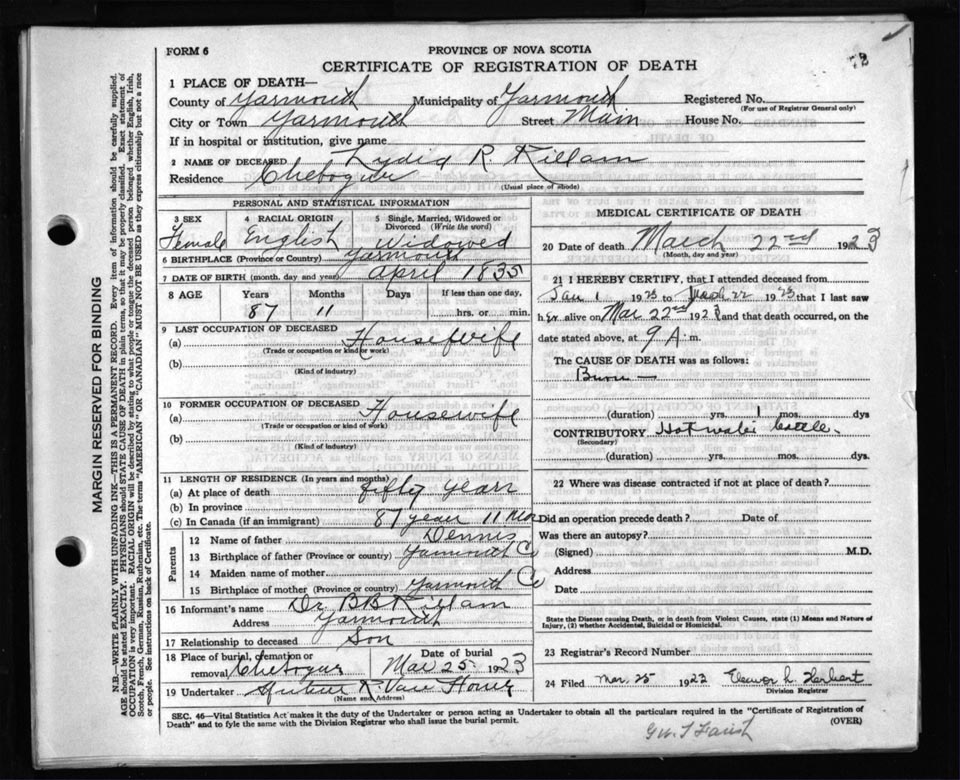 FORM 6
PROVINCE OF NOVA SCOTIA
CERTIFICATE OF REGISTRATION OF DEATH
72
1 PLACE OF DEATH—
County of Yarmouth Municipality of Yarmouth Registered No.
(For use of Registrar General only)
City or Town Yarmouth Street Main House No.
If in hospital or institution, give name
2 NAME OF DECEASED Lydia R. Killam
Residence Chebogue
(Usual place of abode)
PERSONAL AND STATISTICAL INFORMATION
3 SEX Female
4 RACIAL ORIGIN English
5 Single, Married, Widowed or Divorced (Write the word) Widowed
6 BIRTHPLACE (Province or Country) Yarmouth
7 DATE OF BIRTH (month, day and year) April 1835
8 AGE Years 87 Months 11 Days If less than one day, ....hrs. or ....min.
9 LAST OCCUPATION OF DECEASED
(a) Housewife
(Trade or occupation or kind or work)
(b)
(Kind of industry)
10 FORMER OCCUPATION OF DECEASED
(a) Housewife
(Trade or occupation or kind of work)
(b)
(Kind of industry)
11 LENGTH OF RESIDENCE (In years and months)
(a) At place of death fifty years
(b) In province
(c) In Canada (if an immigrant) 87 year 11 mos
Parents
12 Name of father Dennis
13 Birthplace of father (Province or country) Yarmouth Co
14 Maiden name of mother
15 Birthplace of mother (Province or country) Yarmouth Co
16 Informant's name Dr. B B Killam
Address Yarmouth
17 Relationship to deceased Son
18 Place of burial, cremation or removal Chebogue Date of burial Mar 25 1923
19 Undertaker Van Horne
(Name and Address)
MEDICAL CERTIFICATE OF DEATH
20 Date of death March 22nd 1923
(Month, day and year)
21 I HEREBY CERTIFY, that I attended deceased from
Jan 1 1923 to March 22 1923 that I last saw
her alive on Mar 22nd 1923 and that death occurred, on the
date stated above, at 9 A. m.
The CAUSE OF DEATH was as follows:
Burn —
(duration) yrs. 1 mos. dys
CONTRIBUTORY Hot water bottle.
(Secondary)
(duration) yrs. mos. dys
22 Where was disease contracted if not at place of death?
Did an operation precede death? Date of
Was there an autopsy?
(Signed) M.D.
Address
Date
State the Disease causing Death, or in death from Violent Causes, state (1) Means and Nature of
Injury, (2) whether Accidental, Suicidal or Homicidal.
23 Registrar's Record Number
24 Filed Mar. 25 1923 Herbert
Division Registrar
SEC. 46—Vital Statistics Act makes it the duty of the Undertaker or person acting as Undertaker to obtain all the particulars required in the "Certificate of Registration of
Death" and to fyle the same with the Division Registrar who shall issue the burial permit.
(OVER)
Farish
MARGIN RESERVED FOR BINDING
N.B.—WRITE PLAINLY WITH UNFADING INK—THIS IS A PERMANENT RECORD. Every item of information should be carefully supplied.
AGE should be stated EXACTLY. PHYSICIANS should STATE CAUSE OF DEATH in plain terms, so that it may be properly classified. Exact statement of
OCCUPATION is very important. RACIAL ORIGIN will be described by stating to what people or tongue the deceased person belonged whether English, Irish,
Scotch, French, German, Russian, Ruthenian, etc. The terms "AMERICAN" OR "CANADIAN" MUST NOT BE USED as they express citizenship but not a race
or people. See instructions on back of Certificate.